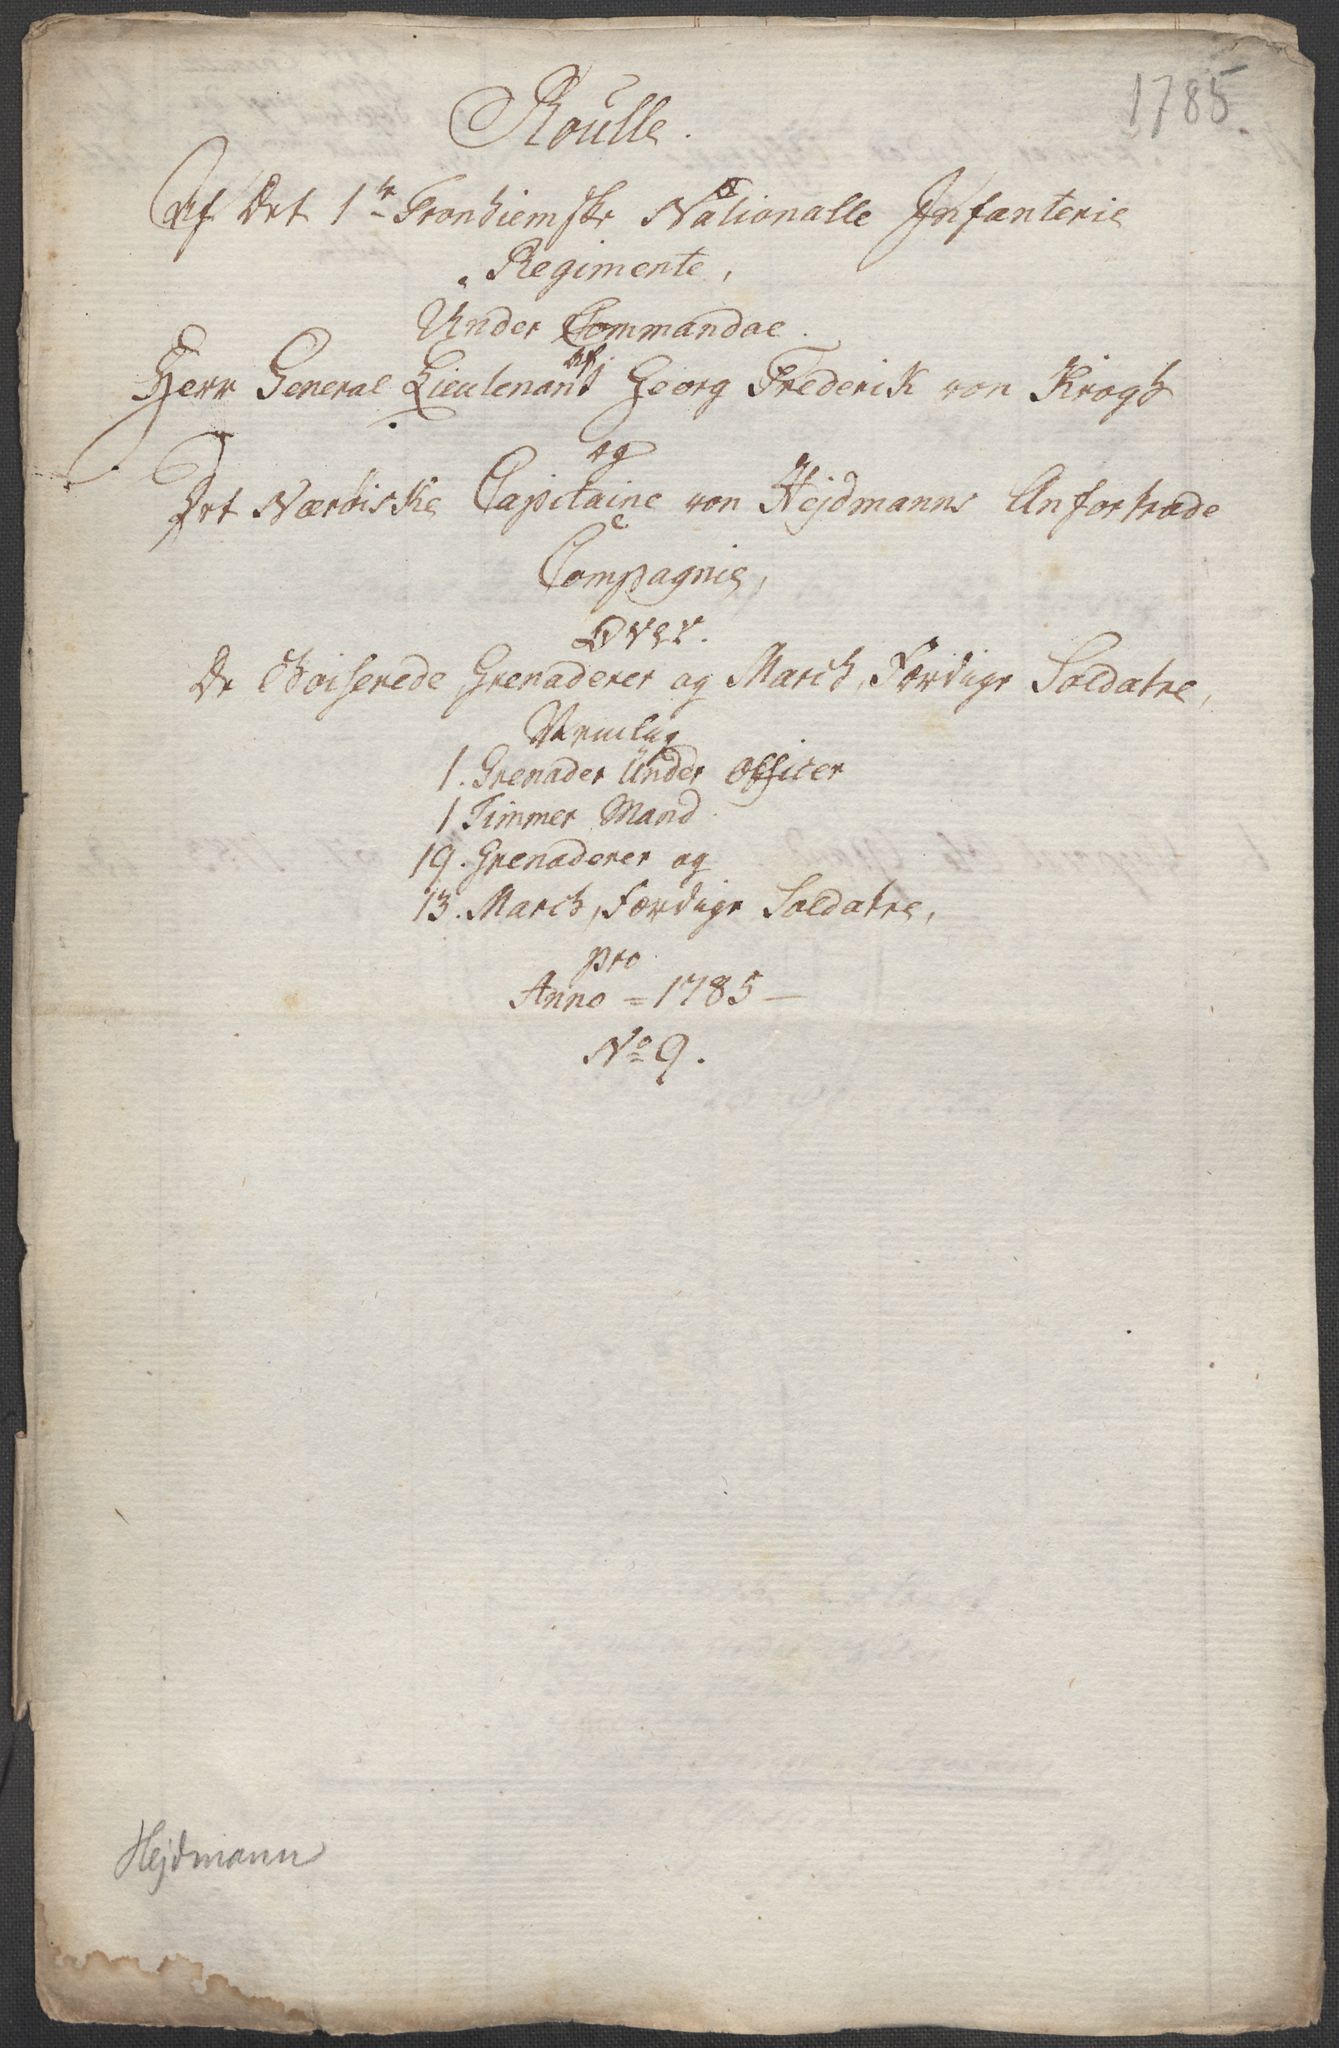 1785
Roulle.
Af Det 1te Trondiemske Nationalle Infanterie
Regimente,
Under Commandoe
af
Herr General Lieutenant Georg Frederik von Krogh
og
Det Værdiske Capitaine von Hejdmanns Anfortrode
Compagnie,
Over.
De Choiserede Grenaderer og March, Færdige Soldatre,
Nemlig
1. Grenader Under Officer
1 Timmer Mand
19. Grenaderer og
13. March, Færdige Soldatre,
pro
Anno = 1785 —
No 9.
Hejdmann